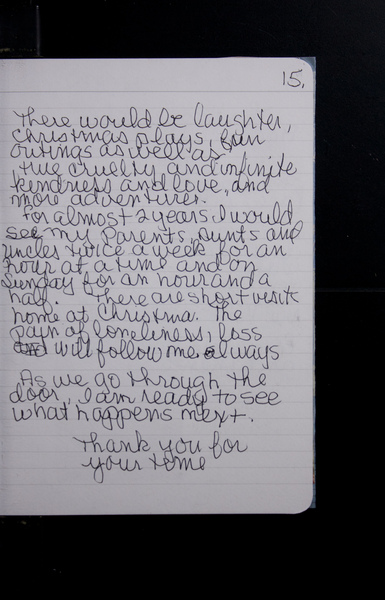 15.
There would be laughter,
Christmas plays, fun
outings as well as
true cruelty and infinite
kindness and love, and
more adventures.
For almost 2 years I would
see my Parents, aunts and
uncles twice a week for an
hour at a time and on
Sunday for an hour and a
half. There are short visits
home at Christmas. The
pain of loneliness, loss
will follow me always
As we go through the
door, I am ready to see
what happens next.
Thank you for
your time